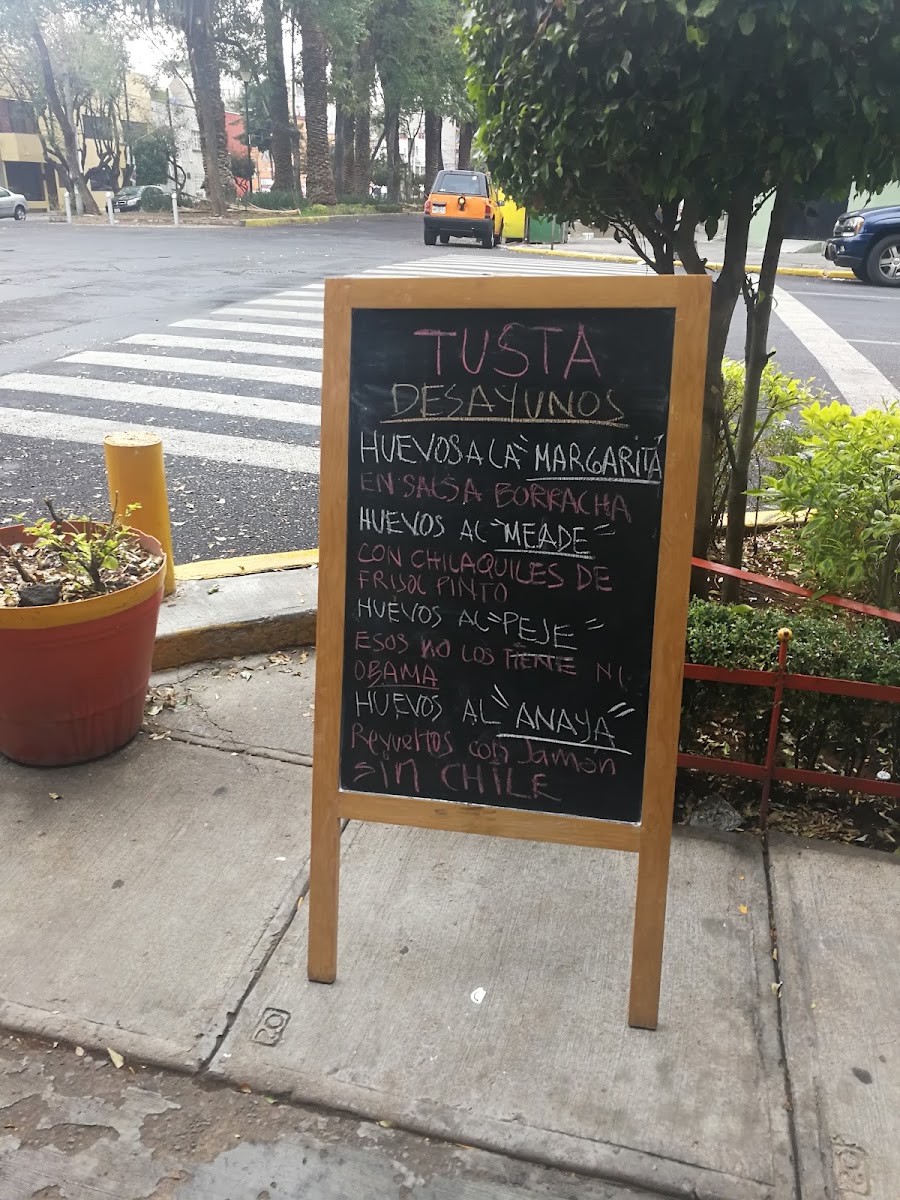 TUSTA
DESAYUNOS
HUEVOS A LA "MARGARITA
EN SALSA BORRACHA
HUEVOS AL "MEADE"
CON CHILAQUILES DE
FRISOL PINTO
HUEVOS AL "PEJE"
ESOS NO LOS TIENE NI
OBAMA
HUEVOS AL "ANAYA"
Revueltos con Jamón
SIN CHILE